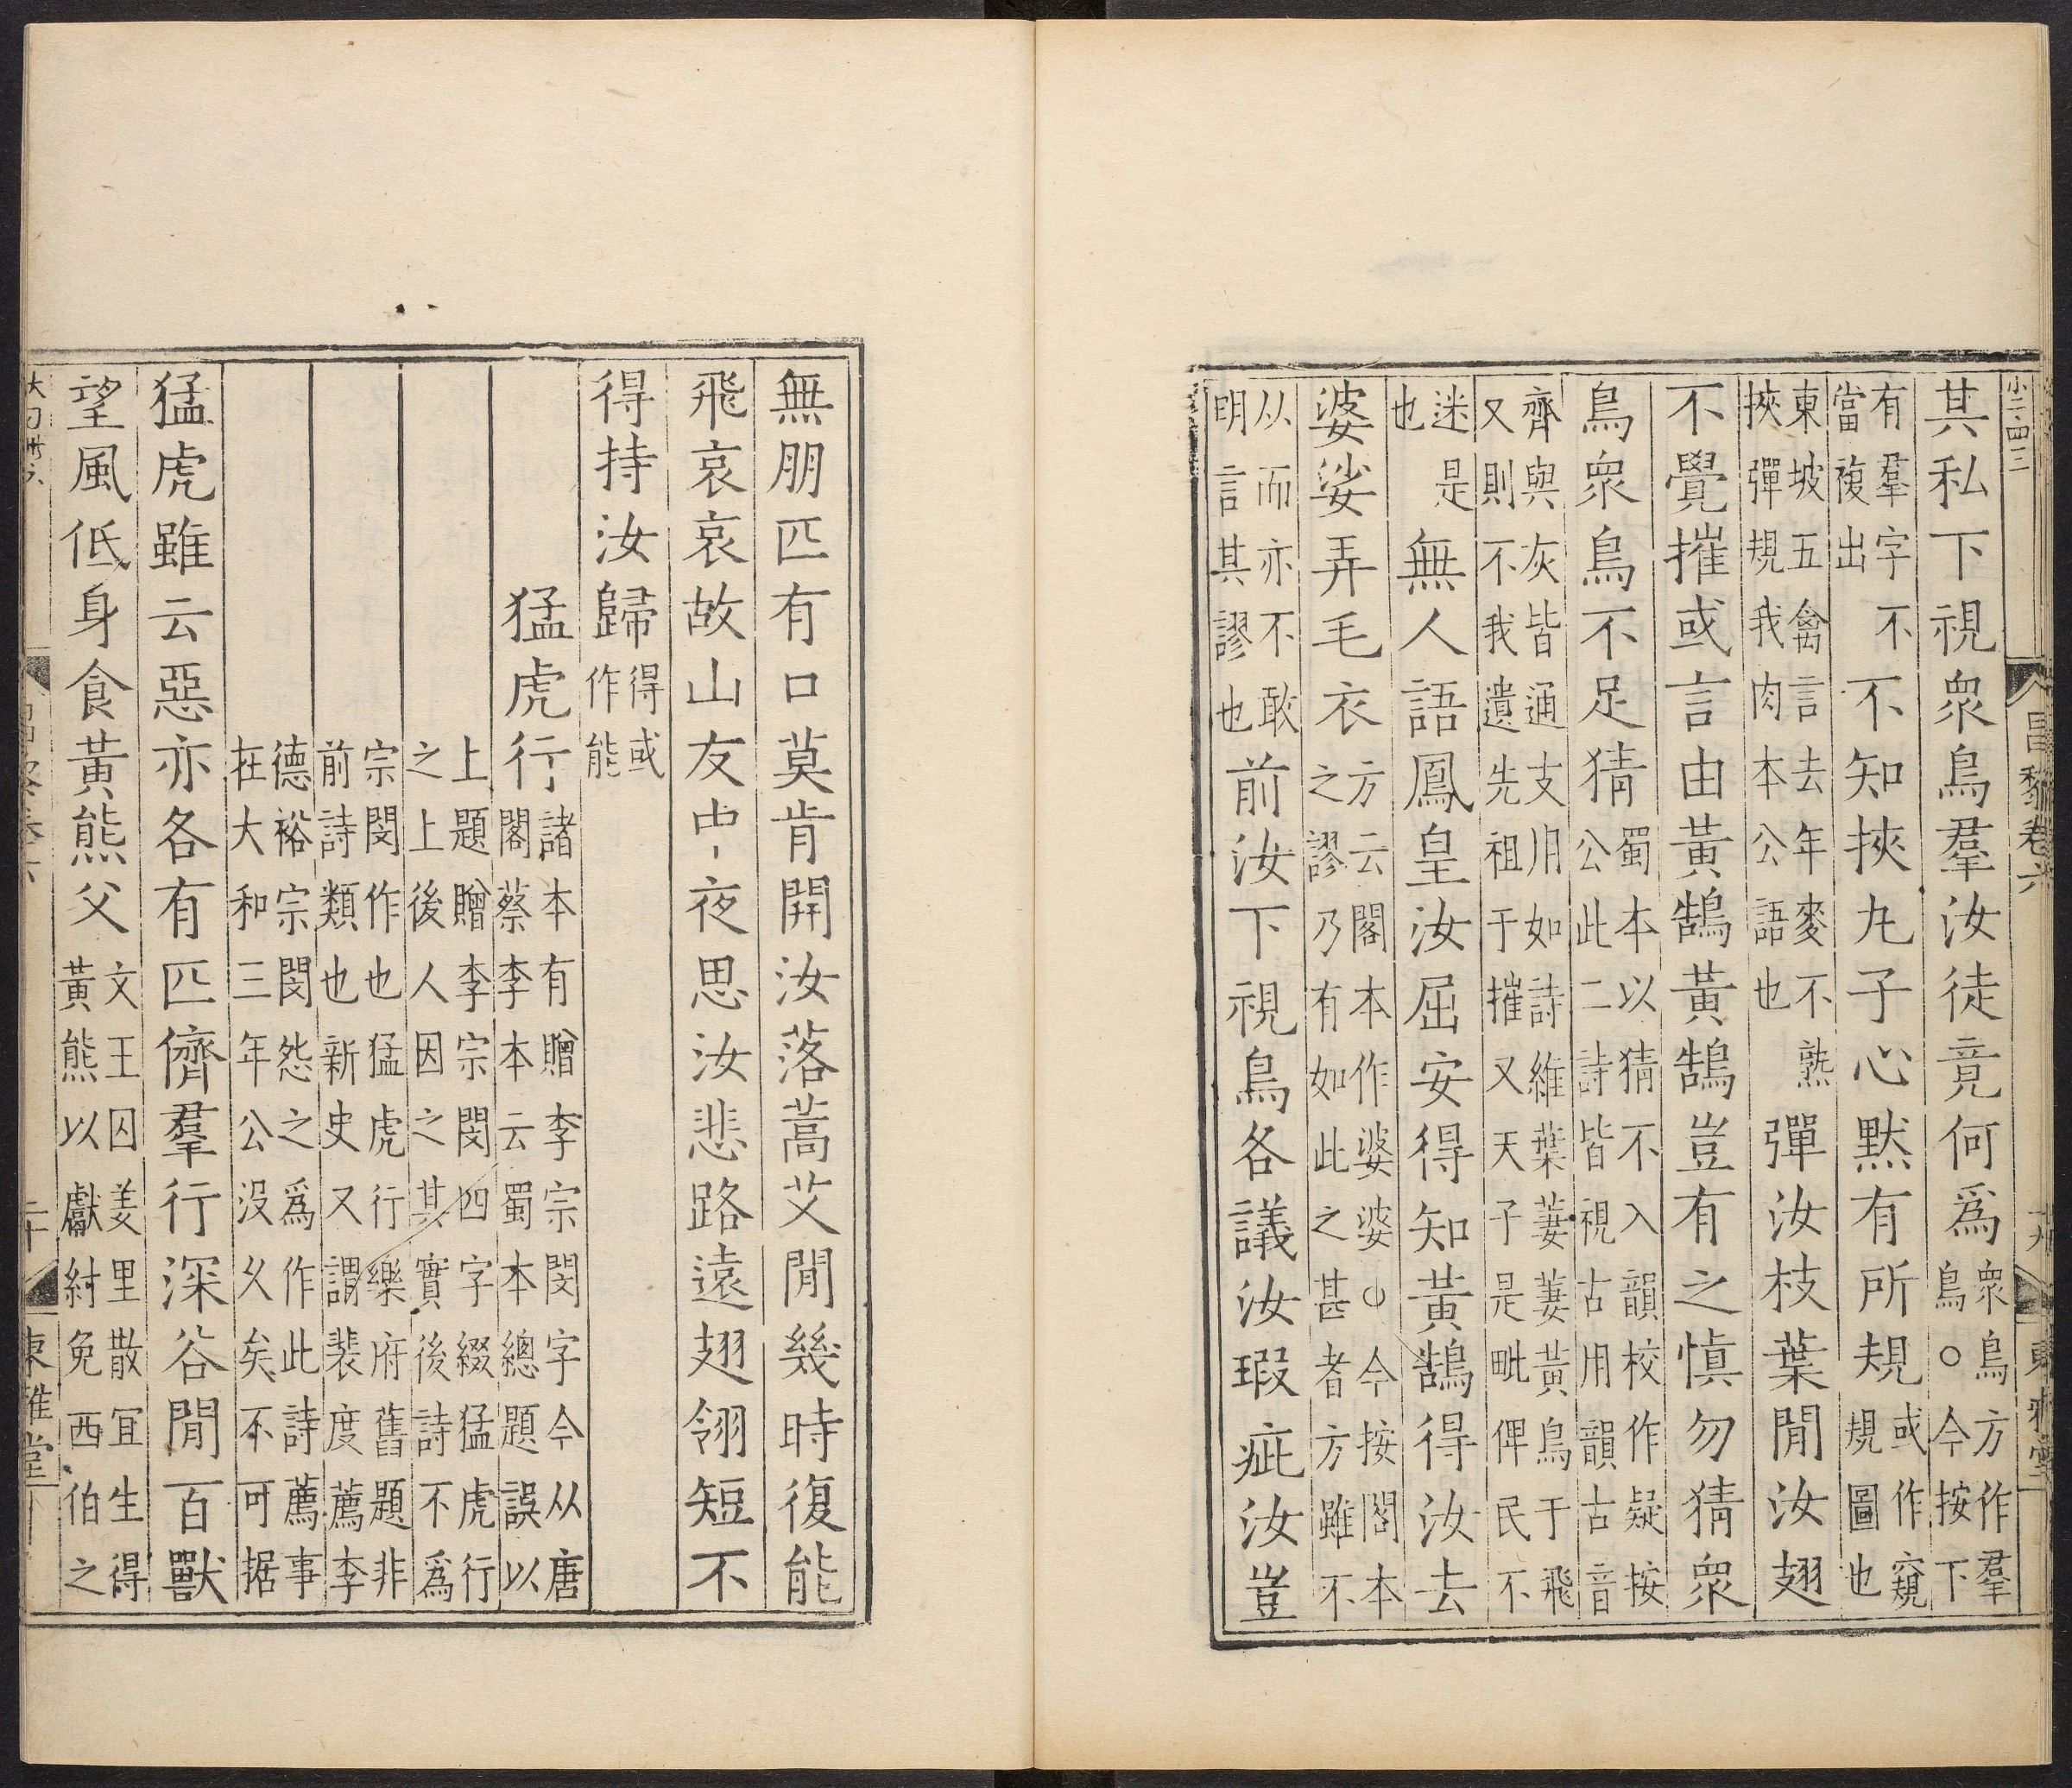 小二四三 昌黎卷六 十九 東雅堂
其私下視衆鳥羣汝徒竟何爲衆鳥方作羣鳥○今按下
有羣字不當複出不知挾丸子心默有所規或作窺規圖也
東坡五禽言去年麥不熟挾彈規我肉本公語也彈汝枝葉閒汝翅
不覺摧或言由黃鵠黃鵠豈有之慎勿猜衆
鳥衆鳥不足猜蜀本以猜不入韻校作疑按公此二詩皆視古用韻古音
齊與灰皆通支用如詩維葉萋萋黃鳥于飛又則不我遺先祖于摧又天子是毗俾民不
迷是也無人語鳳皇汝屈安得知黃鵠得汝去
婆娑弄毛衣方云閣本作婆婆○今按閣本之謬乃有如此之甚者方雖不
从而亦不敢明言其謬也前汝下視鳥各議汝瑕疵汝豈
無朋匹有口莫肯開汝落蒿艾閒幾時復能
飛哀哀故山友中夜思汝悲路遠翅翎短不
得持汝歸得或作能
猛虎行諸本有贈李宗閔字今从唐閣蔡李本云蜀本總題誤以
上題贈李宗閔四字綴猛虎行之上後人因之其實後詩不爲
宗閔作也猛虎行樂府舊題非前詩類也新史又謂裴度薦李
德裕宗閔怨之爲作此詩薦事在大和三年公沒久矣不可据
猛虎雖云惡亦各有匹儕羣行深谷閒百獸
望風低身食黃熊父文王囚姜里散宜生得黃熊以獻紂免西伯之
二十 東雅堂